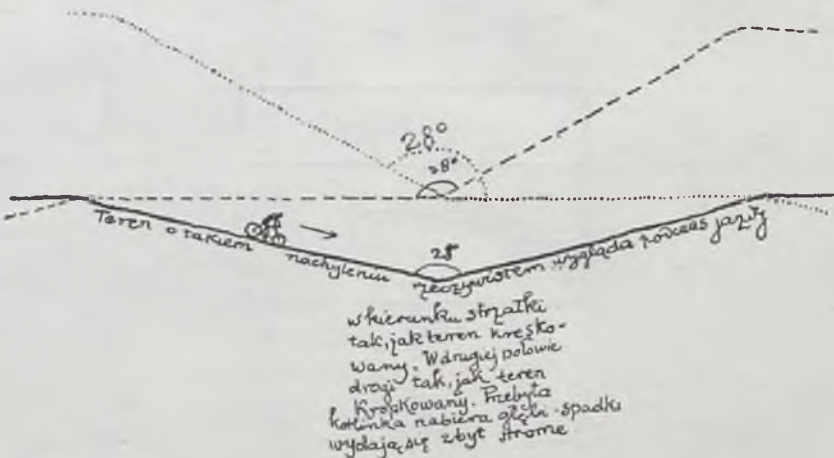 28°
28°
28
Teren o takiem nachyleniu rzeczywistem wygląda podczas jazdy
w kierunku strzałki
tak, jak teren kresko-
wany. W drugiej połowie
drogi tak, jak teren
Kropkowany. Przebyta
kotlinka nabiera głębi - spadki
wydają się zbyt strome